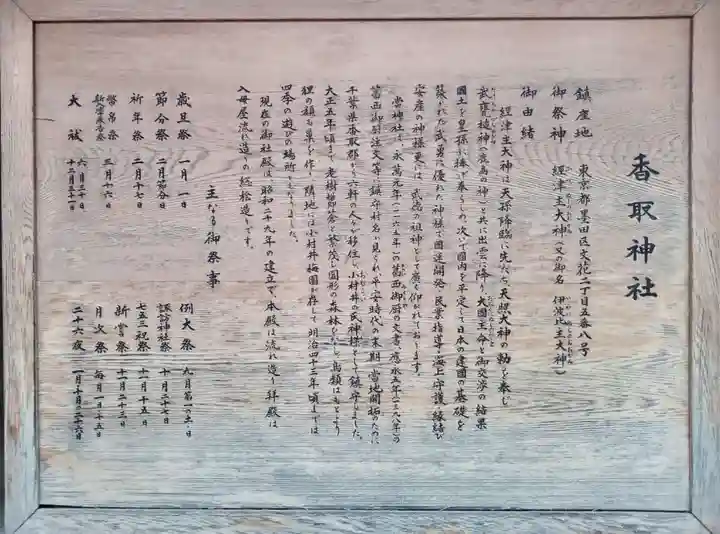 香取神社
鎮座地　東京都墨田区文花二丁目五番八号
御祭神　経津主大神（又の御名　伊波比主大神）
御由緒
経津主大神は天孫降臨に先だち天照大神の勅を奉じ
武甕槌神（鹿島の神）と共に出雲に降り大国主命と御交渉の結果
国土を皇孫に捧げ奉らしめ、次いで国内を平定して日本の建国の基礎を
築かれた武勇に優れた神様で国運開発・民業指導・海上守護・縁結び
安産の神様更には武道の祖神として広く仰がれております。
当神社は永萬元年（一一六五年）の葛西御厨の文書、應永五年（一三九八年）の
葛西御厨注文等に鎮守村名が見られ、平安時代の末期、当地開拓のために
千葉県香取郡より六軒の人々が移住し小村井の氏神様として鎮守しました。
大正五年頃まで老樹鬱蒼と繁茂し円形の森林をなし鳥類はもとより
狸の類も巣を作り隣地には小村井梅園が存して明治四十三年頃までは
四季の遊びの場所でもありました。
現在の御社殿は昭和二十九年の建立で、本殿は流れ造り拝殿は
入母屋流れ造りの総桧造りです。
主なる御祭事
歳旦祭　一月一日
節分祭　二月節分日
祈年祭　二月十七日
三月十六日
大祓　六月三十日
十二月三十一日
例大祭　九月第一の土・日
諏訪神社祭　十月二十七日
七五三祝祭　十一月十五日
新嘗祭　十一月二十三日
月次祭　毎月一日・十五日
二十六夜　一月・十月の二十六日